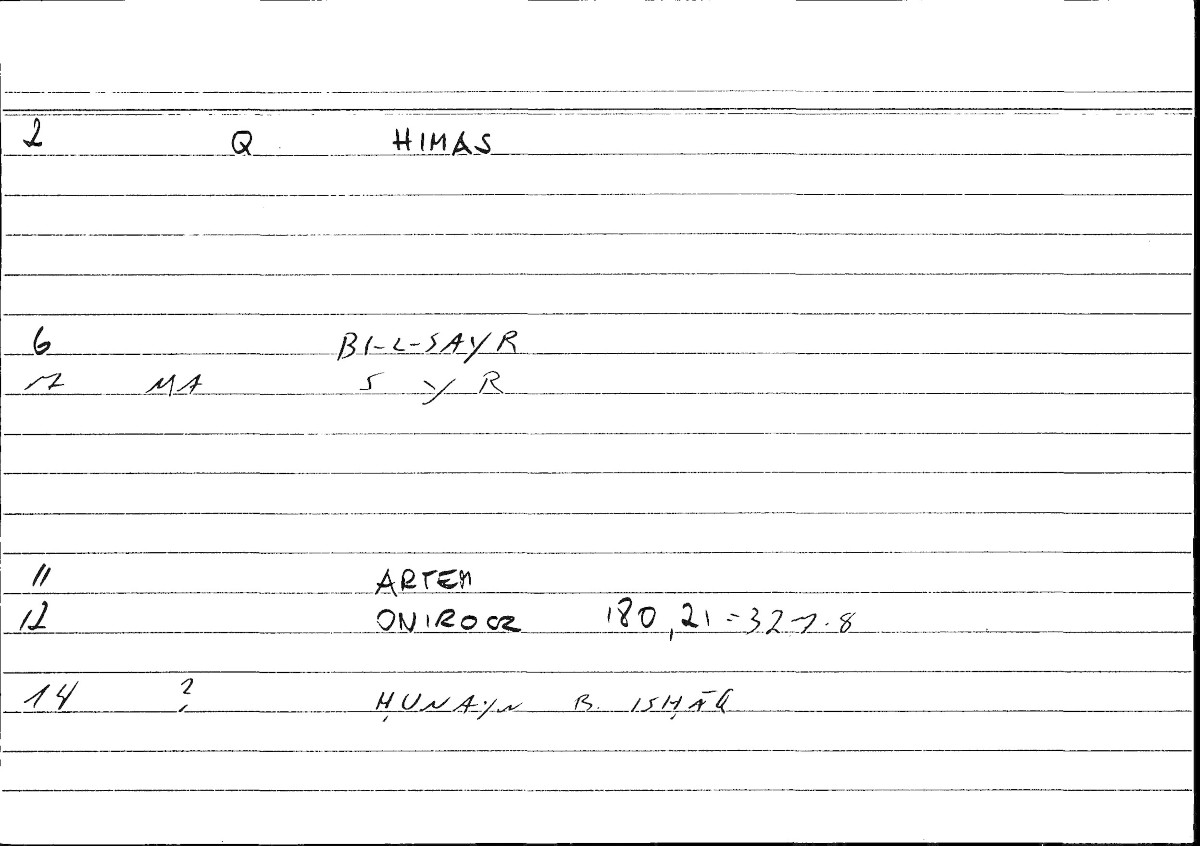 2 Q HIMAS
6 BI-L-SAYR
17 MA S Y R
11 ARTEM
12 ONIROCR 180,21 = 327.8
14 ? ḤUNAYN B. ISḤĀQ